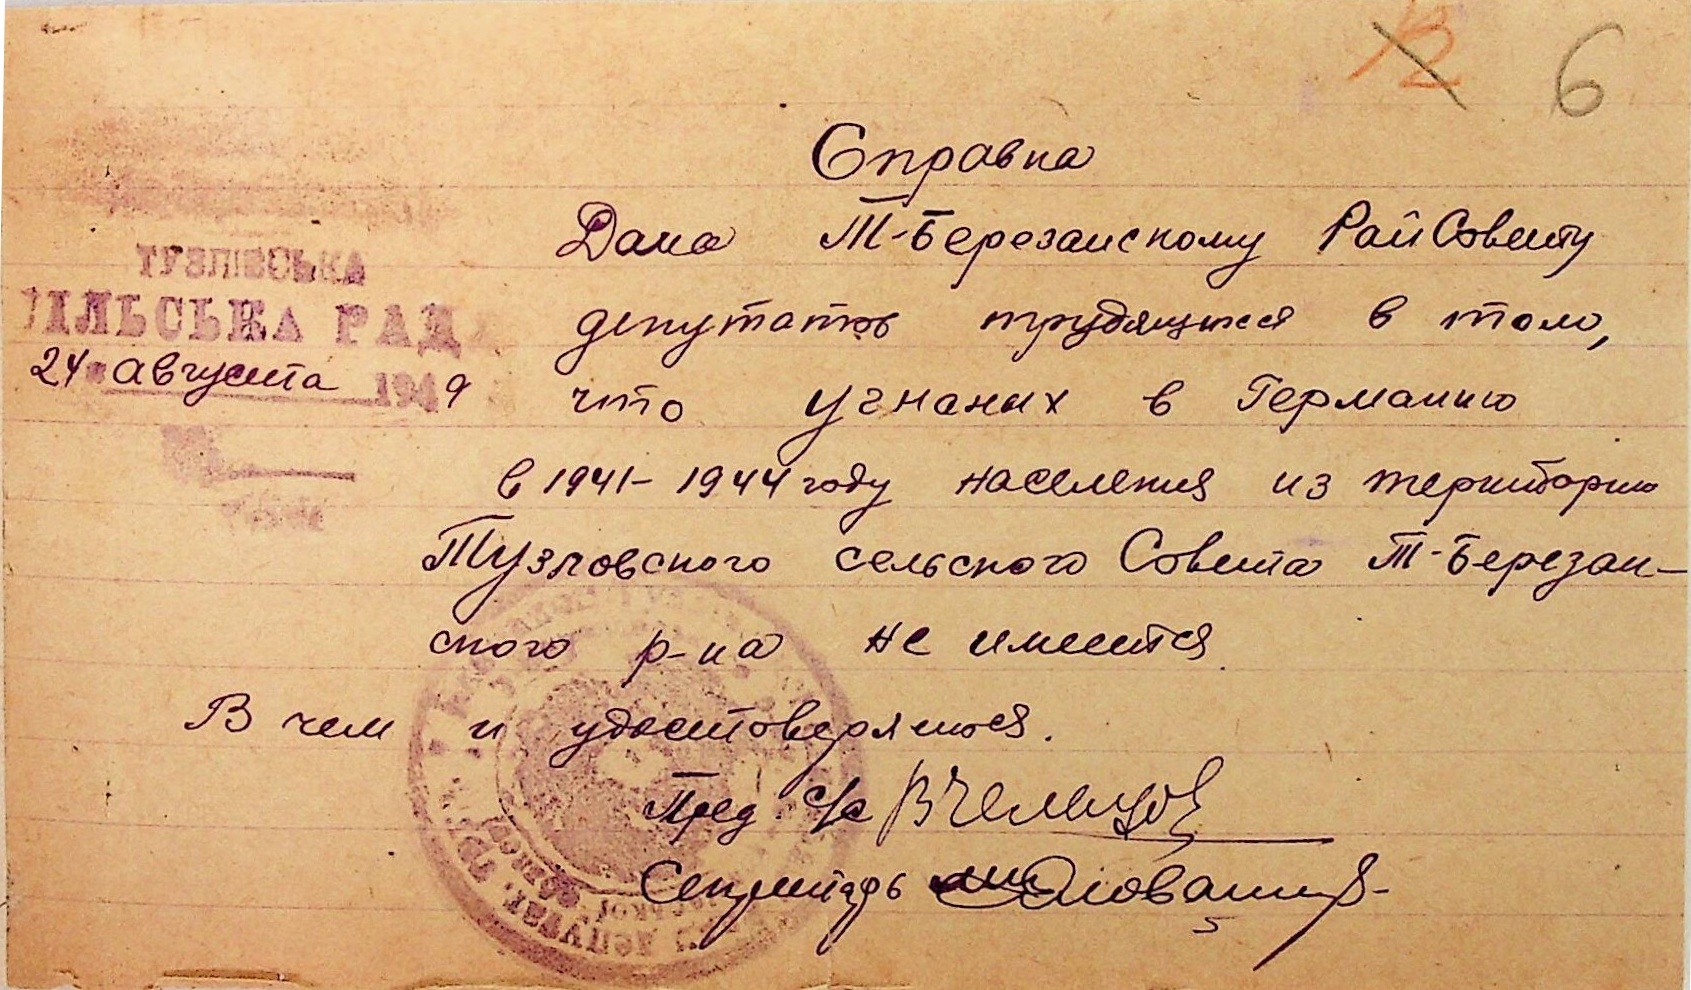 12 6
Справка
Дана Т-Березанскому РайСовету
депутатов трудящихся в том,
что угнаных в Германию
в 1941-1944 году населения из територию
Тузловского сельского Совета Т-Березан-
ского р-на не имеется.
В чем и удостоверяется.
Пред. с/с
Секретарь
ТУЗЛІВСЬКА
СІЛЬСЬКА РАДА
24 августа 1949